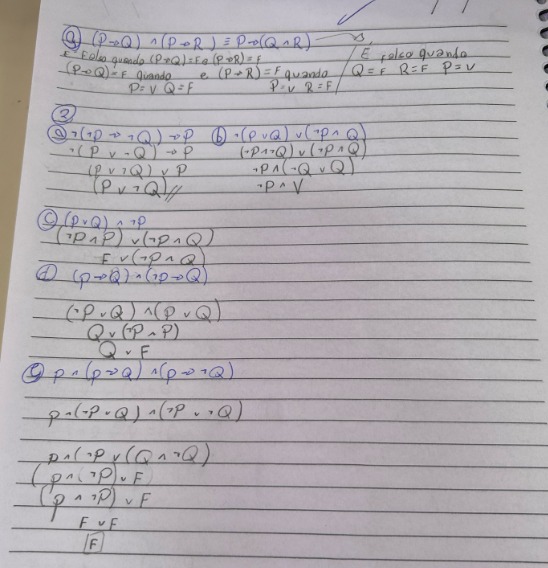 a) (P→Q) ∧ (P→R) ≡ P→(Q∧R)
É Falso quando (P→Q)=F e (P→R)=F
(P→Q)=F quando e (P→R)=F quando
P=V Q=F P=V R=F
É falso quando
Q=F R=F P=V
3)
a) ¬(¬P → ¬Q) → P
¬(P ∨ ¬Q) → P
(P ∨ ¬Q) ∨ P
(P ∨ ¬Q)//
b) ¬(P∨Q) ∨ (¬P∧Q)
(¬P∧¬Q) ∨ (¬P∧Q)
¬P∧(¬Q ∨ Q)
¬P ∧ V
c) (P∨Q) ∧ ¬P
(¬P∧P) ∨ (¬P∧Q)
F ∨ (¬P∧Q)
d) (P→Q) ∧ (¬P→Q)
(¬P∨Q) ∧ (P∨Q)
Q∨(¬P∧P)
Q∨F
e) P∧(P→Q) ∧ (P→¬Q)
P∧(¬P∨Q) ∧ (¬P∨¬Q)
P∧(¬P∨(Q∧¬Q)
(P∧(¬P)∨F
(P∧¬P)∨F
F∨F
F